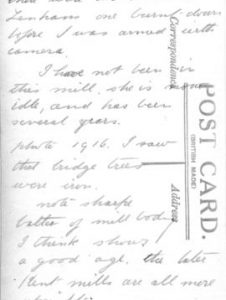 Lenhams one burnt down
before I was armed with
camera
I have not been in
this mill, she is now
idle, and has been
several years.
photo 1916. I saw
that bridge trees
were iron.
note sharp
batter of mill body
I think shows
a good age, the later
Kent mills are all more
Correspondence
POST CARD.
(BRITISH MADE)
Address